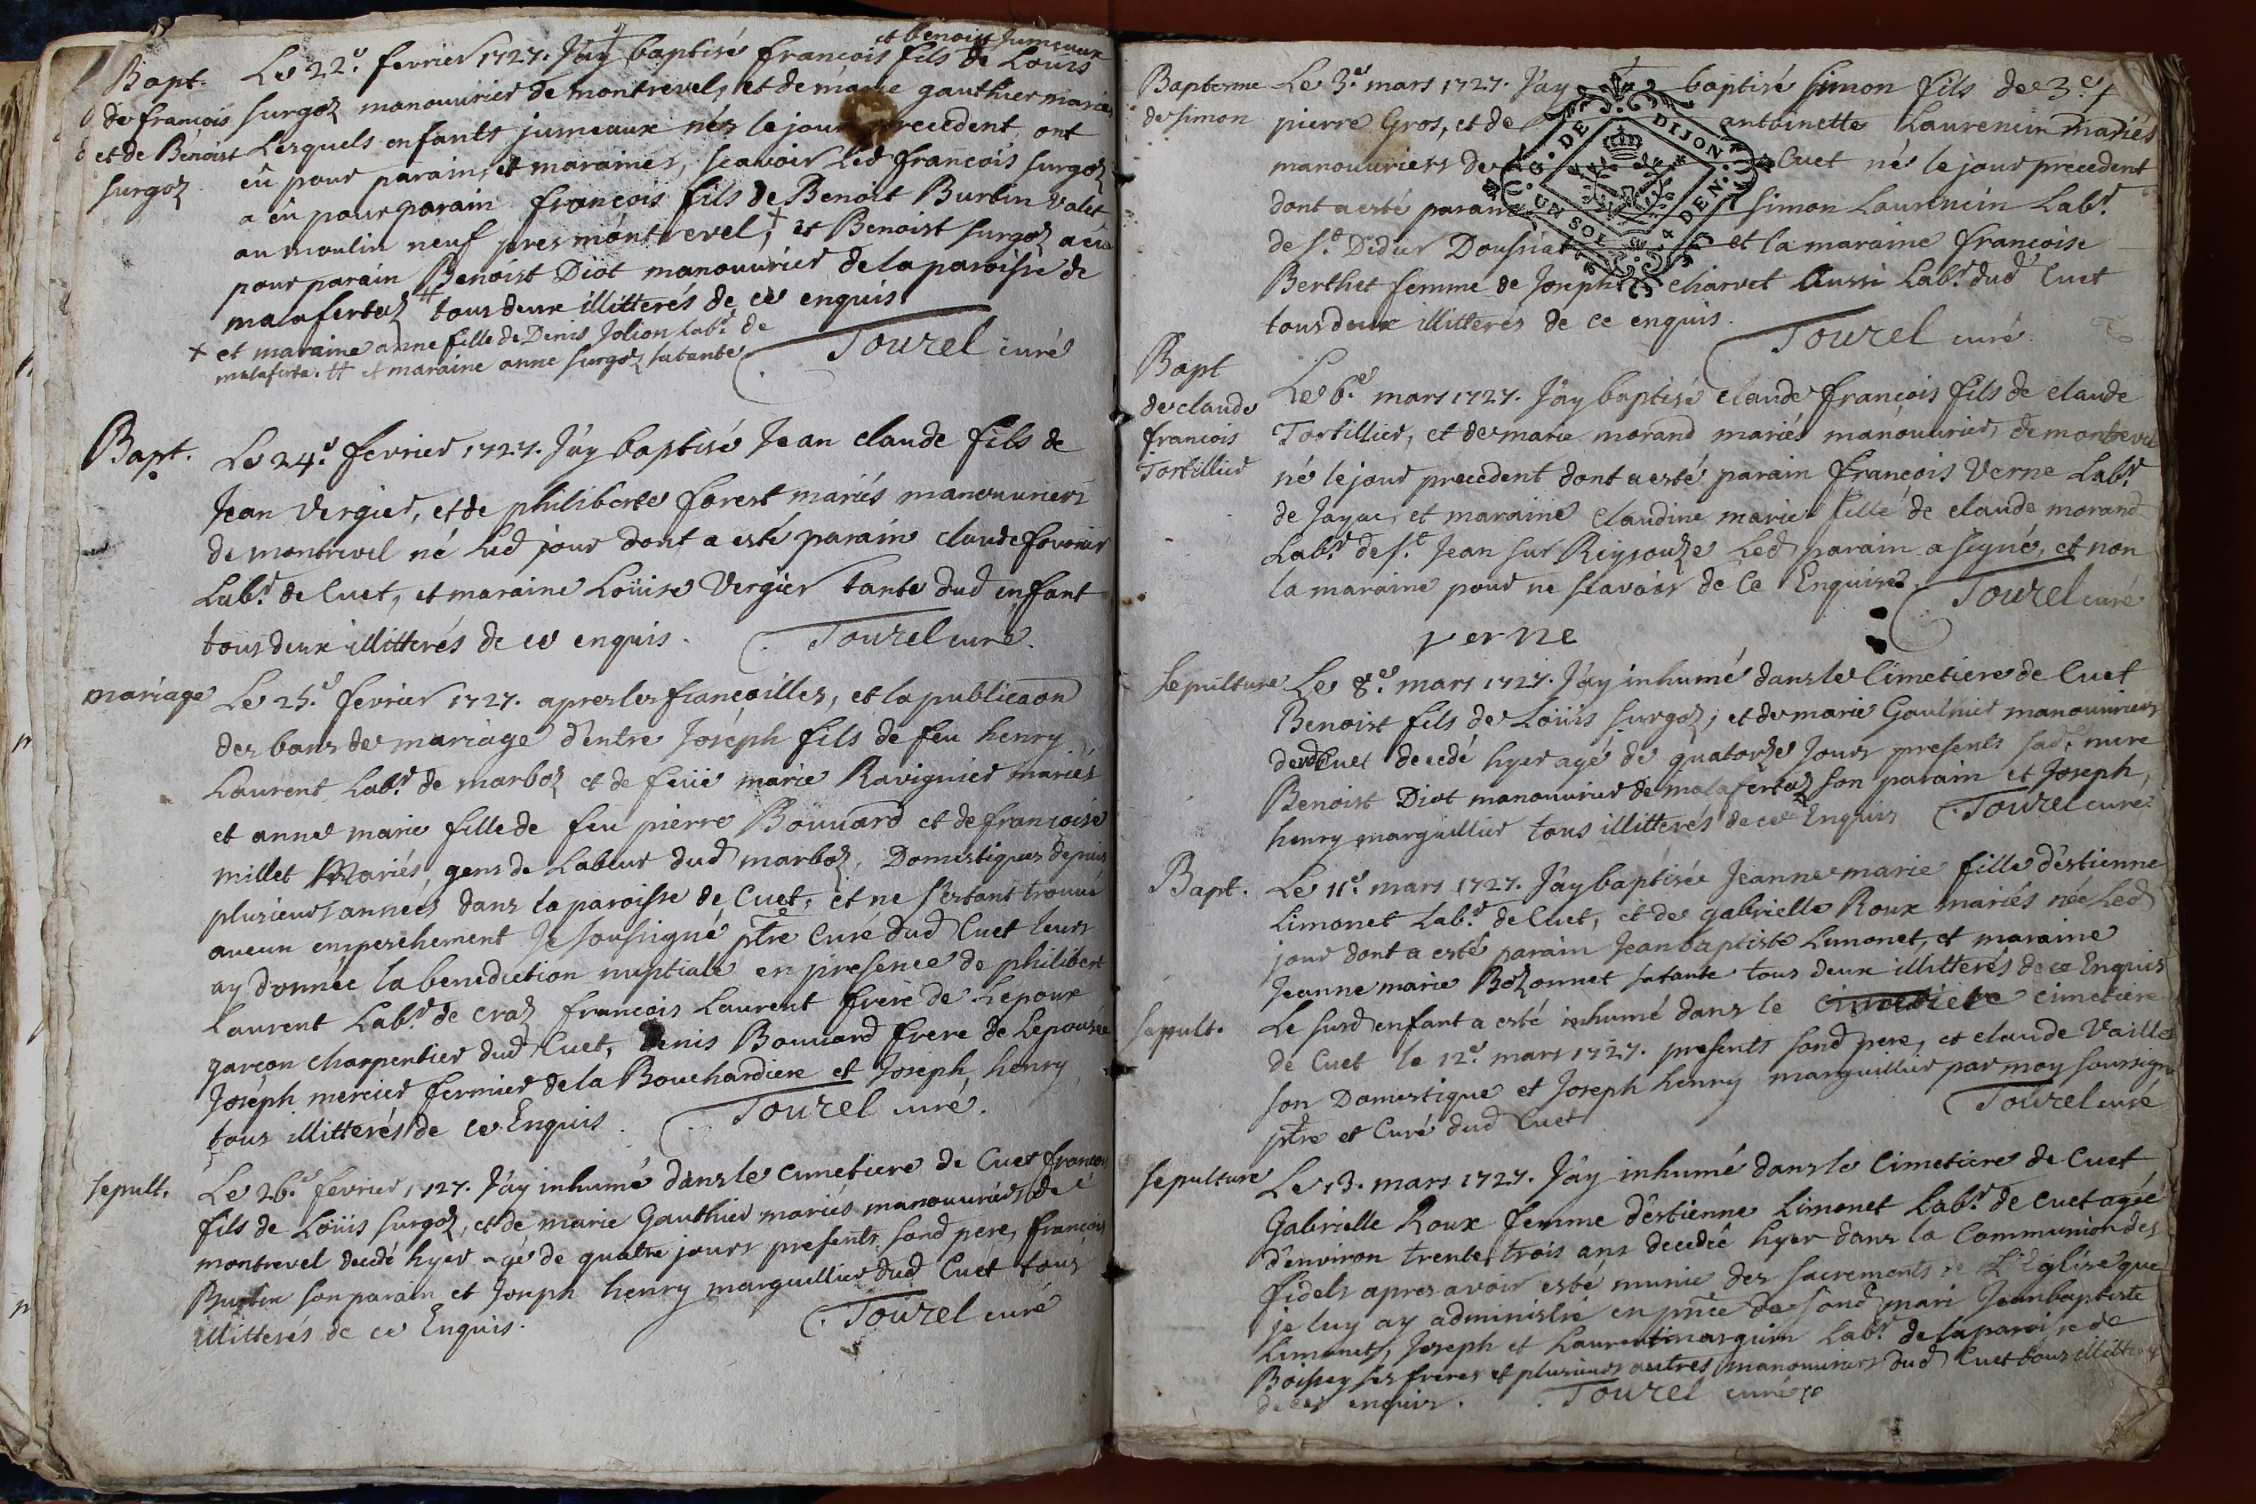 et benoist Jumeaux
Bapt. Le 22.e fevrier 1727. J'ay baptisé francois fils de Louis
de francois surgoz manouurier de montrevel, et de marie gauthier mariés
et de Benoist Lesquels enfants jumeaux nés le jour precedent ont
surgoz eû pour parains, et maraines, scavoir led francois surgoz
a eû pour parain françois fils de Benoit Burtin valet
au moulin neuf pres montrevel, + et Benoist surgoz a eu
pour parain Benoist Diot manouurier de la paroisse de
malafertaz # tous deux illitterés de ce enquis
+ et maraine anne fille de Denis Jolion Lab.r de
malaferta. # et maraine anne surgoz sa tante Tourel curé
Bapt. Le 24.e fevrier 1727. J'ay baptisé Jean claude fils de
Jean Vergier, et de philiberte forest mariés manouuriers
de montrevel né lud jour dont a esté parain claude
Lab.r de Cuet, et maraine Loüise Vergier tante dud enfant
tous deux illitterés de ce enquis. Tourel curé.
mariage Le 25.e fevrier 1727. apres les fiancailles, et la publicaon
des bans de mariage d'entre Joséph fils de feu henry
Laurent Lab.r de marboz et de feüe marie Ravignier mariés
et anne marie fille de feu pierre Bouuard et de francoise
millet Mariés, gens de Labeur dud marboz, Domestiques depuis
plusieurs années dans la paroisse de Cuet, et ne s'estant trouué
aucun empeschement Je soussigné ptre Curé dud Cuet leurs
ay donnée la benediction nuptiale en presence de philibert
Laurent Lab.r de craz francois Laurent frere de Lepoux
garcon charpentier dud Cuet, Denis Bouuard frere de Lepouse
Joséph mercier fermier de la Bouchardiere et Joseph henry
tous illitterés de ce Enquis. Tourel curé.
sepult. Le 26.e fevrier 1727. J'ay inhumé dans le cimetiere de Cuet francois
fils de Loüis surgoz, et de marie Gauthier mariés manouuriers de
montrevel decedé hyer agé de quatre jours presents sond pere, francois
Burtin son parain et Joseph henry marguillier dud Cuet tous
illitterés de ce Enquis. Tourel curé
Baptesme Le 3.e mars 1727. J'ay baptisé simon fils de
de simon pierre Gros, et de antoinette Laurencin mariés
manouuriers de Cuet né le jour precedent
dont a esté parain simon Laurencin Lab.r
de s.t Didier Doussiat et la maraine francoise
Berthet femme de Joseph charvet aussi Lab.r dud Cuet
tous deux illitterés de ce enquis. Tourel curé.
G. DE DIJON
UN SOL 4 DEN.
Bapt Le 6.e mars 1727. J'ay baptisé claude françois fils de claude
de claude Tortillier, et de marie morand mariés manouurier, de montrevel
francois né le jour precedent dont a esté parain françois Verne Lab.r
Tortillier de Jayac, et maraine claudine marie fille de claude morand
Lab.r de s.t Jean sur Reysouze Led parain a signé, et non
la maraine pour ne scavoir de ce Enquise. Tourel curé
verne
sepulture Le 8.e mars 1727. J'ay inhumé dans le Cimetiere de Cuet
Benoist fils de Loüis surgoz, et de marie Gauthier manouuriers
dud Cuet decedé hyer agé de quatorze Jours presents sad. mere
Benoist Diot manouurier de malafertaz son parain et Joseph,
henry marguillier tous illitterés de ce Enquis Tourel curé
Bapt. Le 11.e mars 1727. J'ay baptisée Jeanne marie fille d'estienne
Limonet Lab.r de Cuet, et de gabrielle Roux mariés née Led
jour dont a esté parain Jean baptiste Limonet, et maraine
Jeanne marie Bozonnet sa tante tous deux illitterés de ce Enquis
sepult. Le susd enfant a esté inhumé dans le cimetiere
de Cuet le 12.e mars 1727. presents sond pere, et claude Vaillet
son Domestique et Joseph henry marguillier par moy soussigné
ptre et Curé dud Cuet Tourel curé
sepulture Le 13. mars 1727. J'ay inhumé dans le Cimetiere de Cuet
Gabrielle Roux femme d'estienne Limonet Lab.r de cuet agée
d'environ trente trois ans decedée hyer dans la Communion des
fidels apres avoir esté munie des sacrements de L'Eglise que
je luy ay administré en pnce de sond mari Jean baptiste
Limonet, Joseph et Laurent marguin Lab.r de la paroisse de
Boissey ses freres et plusieurs autres manouuriers dud Cuet tous illitterés
de ce enquis. Tourel curé